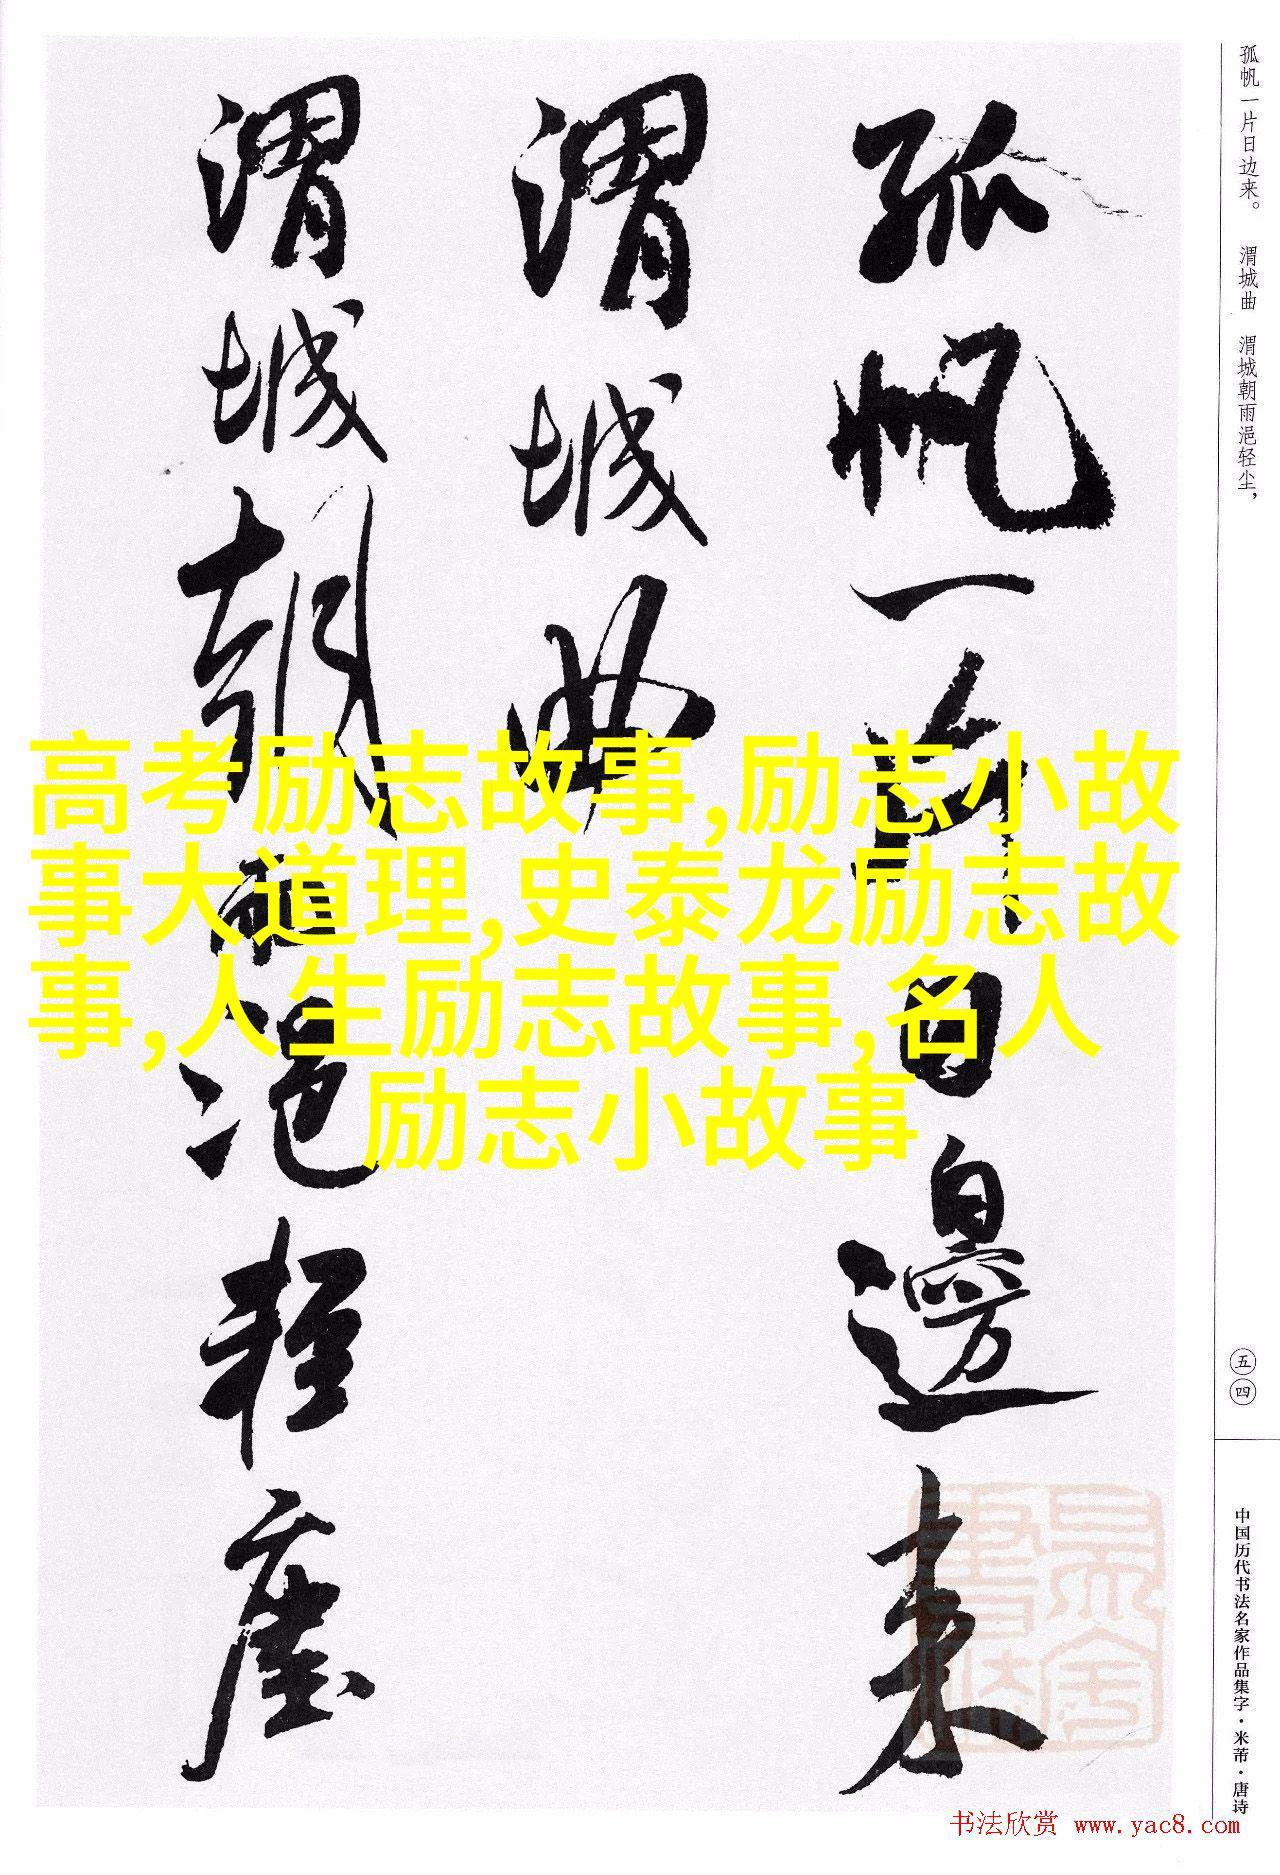 孤帆一片日边来。 渭城曲 渭城朝雨浥轻尘，
孤帆一片日邊来
渭城曲
渭城朝雨浥轻塵
高考励志故事,励志小故
事大道理,史泰龙励志故
事,人生励志故事,名人
励志小故事
五四
中国历代书法名家作品集字·米芾·唐诗
书法欣赏 www.yac8.com